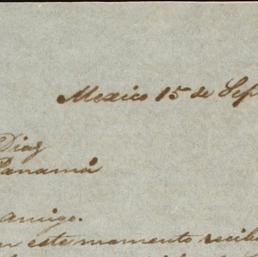 Mexico 15 de Sep
Diaz
Panamá
amigo.
en este momento recib